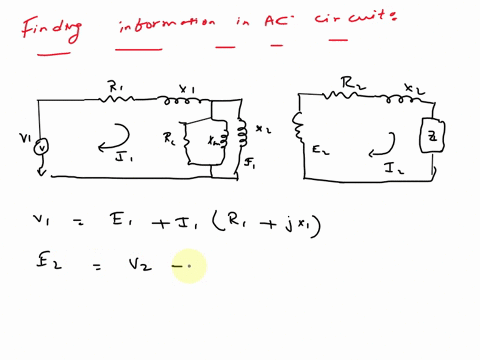 Finding information in AC circuits
R1 X1 R2 X2
V1 V I1 Rc Xm X2 E1 E2 I2 ZL
V1 = E1 + I1 (R1 + jX1)
E2 = V2 -